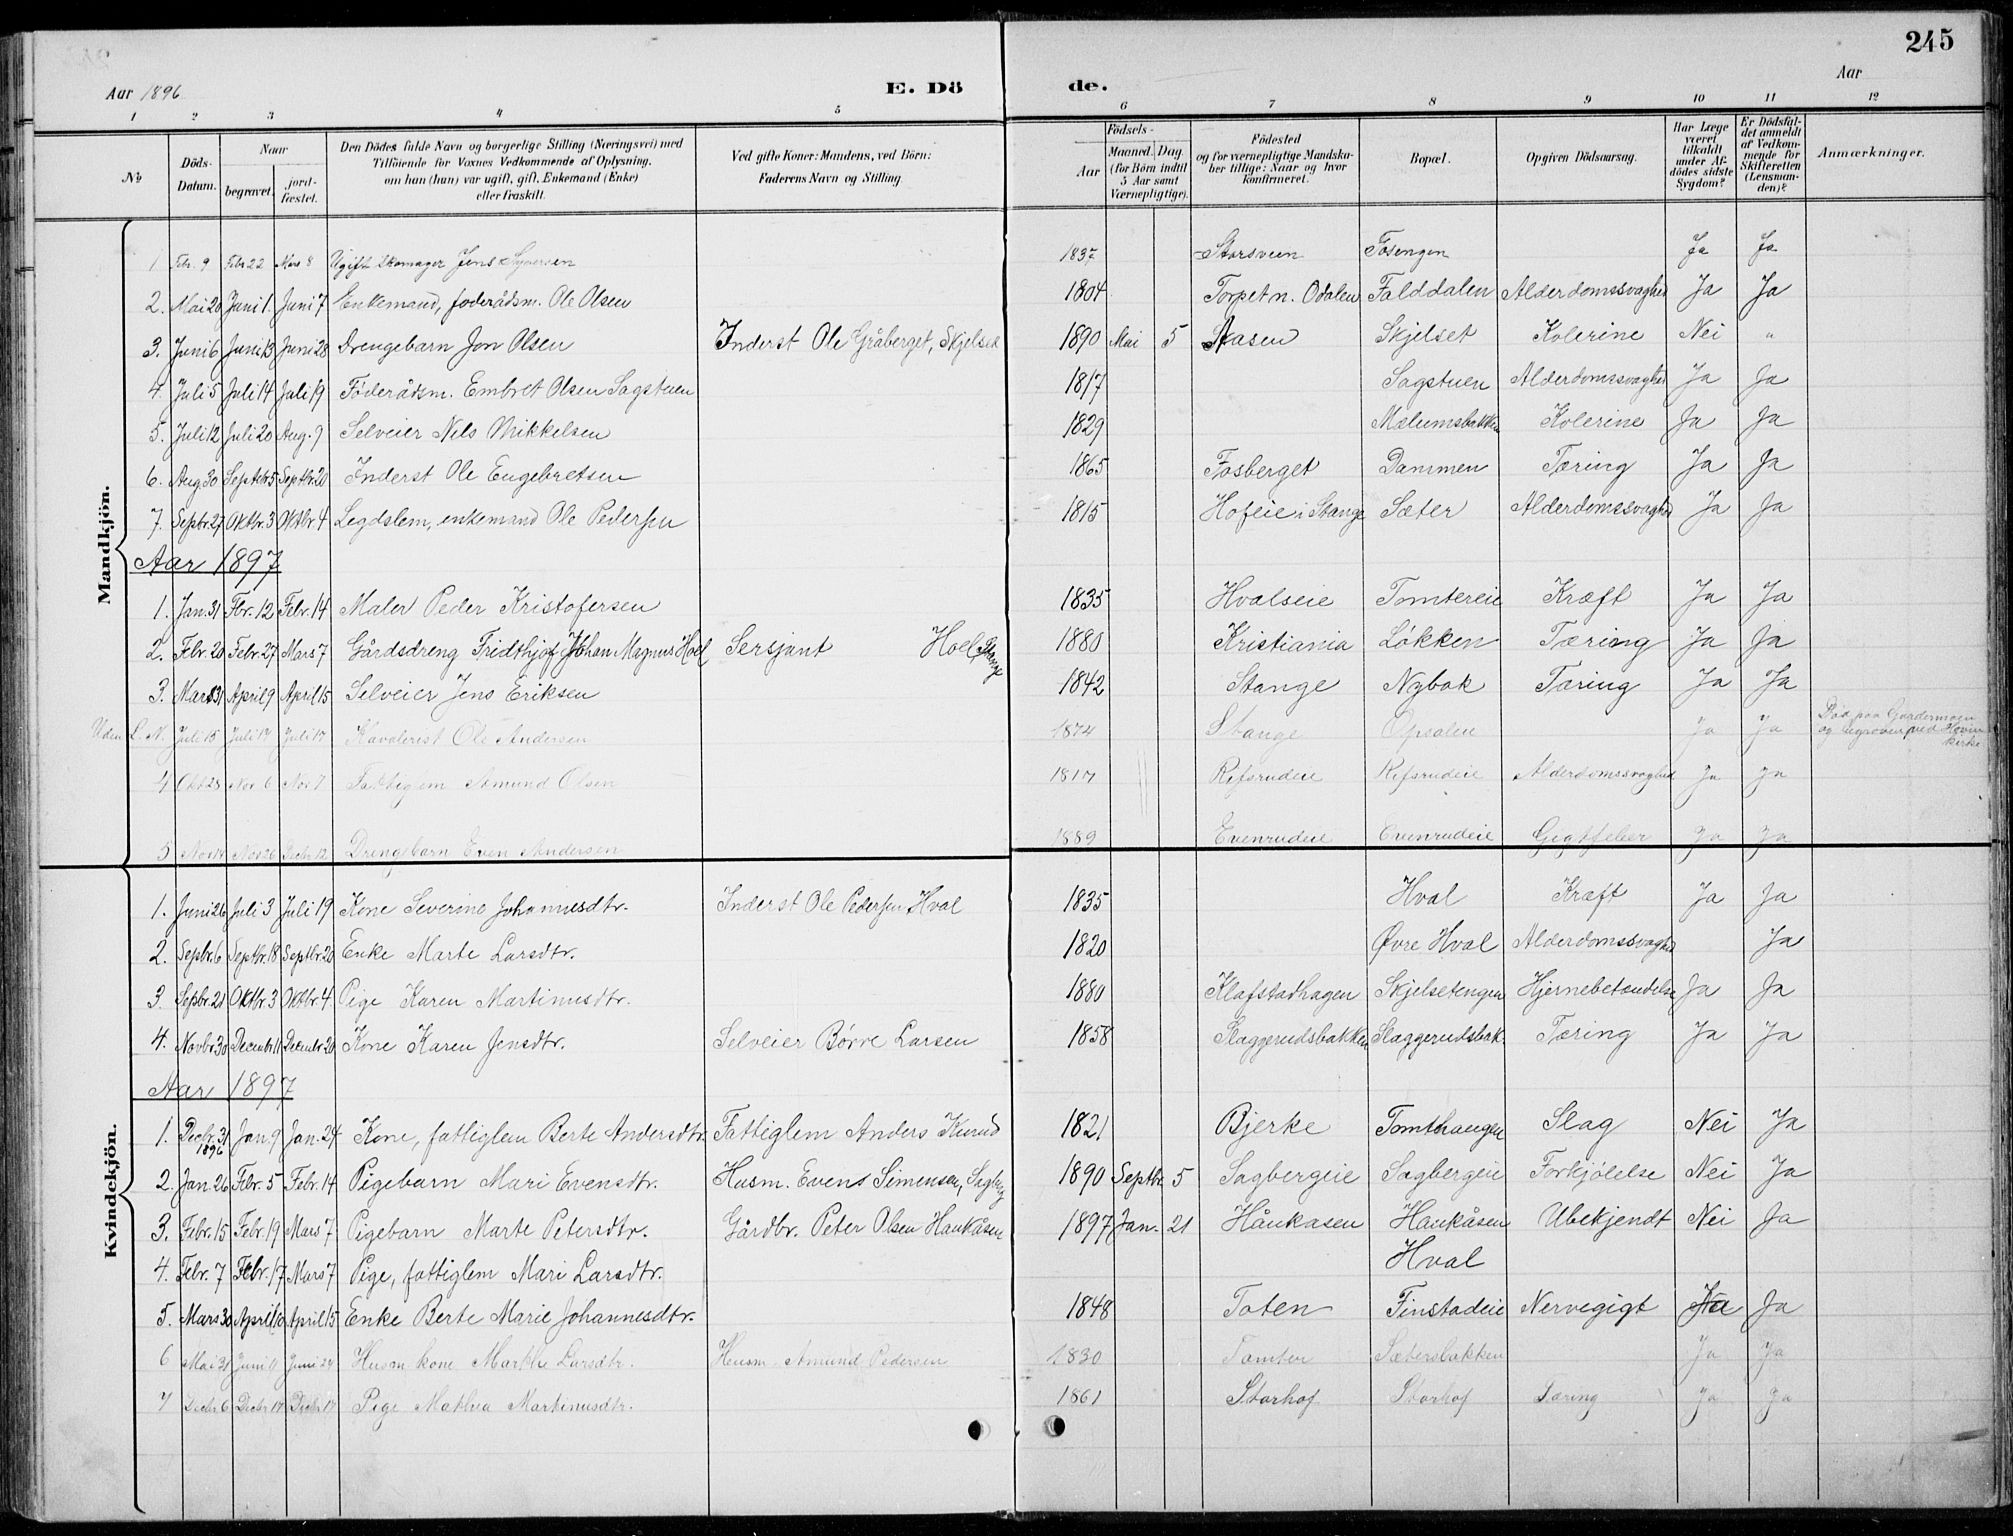 245
Aar 1896
E. Dö
de.
Aar
1 2 3 4 5 6 7 8 9 10 11 12
No
Döds-Datum.
Naar
begravet.
jord-fæstet.
Den Dödes fulde Navn og borgerlige Stilling (Næringsvei) med
Tilföiende for Voxnes Vedkommende af Oplysning,
om han (hun) var ugift, gift, Enkemand (Enke)
eller fraskilt.
Ved gifte Koner: Mandens, ved Börn:
Faderens Navn og Stilling.
Födsels-
Aar
Maaned. Dag.
(for Börn indtil
5 Aar samt
Værnepligtige).
Födested
og for værnepligtige Mandska-
ber tillige: Naar og hvor
konfirmeret.
Bopæl.
Opgiven Dödsaarsag.
Har Læge
været
tilkaldt
under Af-
dödes sidste
Sygdom?
Er Dödsfal-
det anmeldt
af Vedkom-
mende for
Skifteretten
(Lensman-
den)?
Anmærkninger.
Mandkjön.
1 Febr. 9 Febr 22 Mars 8 Ugift Skomager Jens Syversen 1837 Storsveen Fosengen Ja Ja
2. Mai 20 Juni 1. Juni 7 Enkemand, føderådsm. Ole Olsen 1804 Torpet n. Odalen Falddalen Alderdomssvaghed Ja Ja
3. Juni 6 Juni 13 Juni 28 Drengebarn Jon Olsen Inderst Ole Gråberget, Skjelset 1890 Mai 5 Aasen Skjelset Kolerine Nei "
4. Juli 5 Juli 14 Juli 19 Føderådsm. Embret Olsen Sagstuen 1817 Sagstuen Alderdomssvaghed Ja Ja
5. Juli 12 Juli 20 Aug. 9 Selveier Nils Mikkelsen 1829 Mælumsbakken Kolerine Ja Ja
6. Aug 30 Septbr 5 Septbr. 20 Inderst Ole Engebretsen 1865 Fosberget Dammen Tæring Ja Ja
7. Septbr. 27 Oktbr. 3 Oktbr. 4 Legdslem, enkemand Ole Pedersen 1815 Hofeie i Stange Sæter Alderdomssvaghed Ja Ja
Aar 1897
1. Jan. 31 Fbr. 12 Febr. 14 Maler Peder Kristofersen 1835 Hvalseie Tomtereie Kræft Ja Ja
2. Febr. 20 Febr. 27 Mars 7 Gårdsdreng Fridthjof Johan Magnus Hoel Sersjant Hoel, Stange 1880 Kristiania Løkken Tæring Ja Ja
3. Mars 31 April 9 April 15 Selveier Jens Eriksen 1842 Stange Nybak Tæring Ja Ja
Uden L. N. Juli 15 Juli 17 Juli 17 Kavalerist Ole Andersen 1874 Stange Opsalen Ja Ja Død paa Gardermoen
og begraven ved Hovin
kirke
4 Okt 28 Nov 6 Nov 7 Fattiglem Amund Olsen 1817 Refsrudeie Refsrudeie Alderdomssvaghed Ja Ja
5 Nov 14 Nov 26 Decbr 12 Drengebarn Even Andersen 1889 Evenrudeie Evenrudeie Gigtfeber Ja Ja
Kvindekjön.
1. Juni 26 Juli 3 Juli 19 Kone Severine Johannesdtr. Inderst Ole Pedersen Hval 1835 Hval Kræft Ja Ja
2. Sepbr. 6 Septbr. 18 Septbr. 20 Enke Marte Larsdtr. 1820 Øvre Hval Alderdomssvaghed Ja
3. Sepbr. 21 Oktbr. 3 Oktbr. 4 Pige Karen Martinusdtr. 1880 Klafstadhagen Skjelsetengen Hjernebetændelse Ja Ja
4. Novbr. 30 Decembr 11 Decembr 20 Kone Karen Jensdtr. Selveier Børre Larsen 1858 Slaggerudsbakken Slaggerudsbak. Tæring Ja Ja
Aar 1897
1. Decbr. 31 1896 Jan. 9 Jan. 24 Kone, fattiglem Berte Andersdtr. Fattiglem Anders Kurud 1821 Bjerke Tomthaugen Slag Nei Ja
2. Jan. 26 Febr. 5 Febr. 14 Pigebarn Mari Evensdtr. Husm. Evens Simensen, Sagberg 1890 Septbr. 5 Sagbergeie Sagbergeie Forkjølelse Nei Ja
3. Febr. 15 Febr. 19 Mars 7 Pigebarn Marte Petersdtr. Gårdbr. Peter Olsen Haukåsen 1897 Jan. 21 Håukasen Haukåsen Ubekjendt Nei Ja
4. Febr. 7 Febr. 17 Mars 7 Pige, fattiglem Mari Larsdtr. Hval
5. Mars 30 April 10 April 15 Enke Berte Marie Johannesdtr. 1848 Toten Finstadeie Nervegigt Ja Ja
6 Mai 31 Juni 11 Juni 24 Husm. kone Marthe Larsdtr. Husm. Amund Pedersen 1830 Tomter Sætersbakken Ja Ja
7 Decbr. 6 Decbr 17 Decbr 17 Pige Mathea Martinusdtr. 1861 Storhof Storhof Tæring Ja Ja